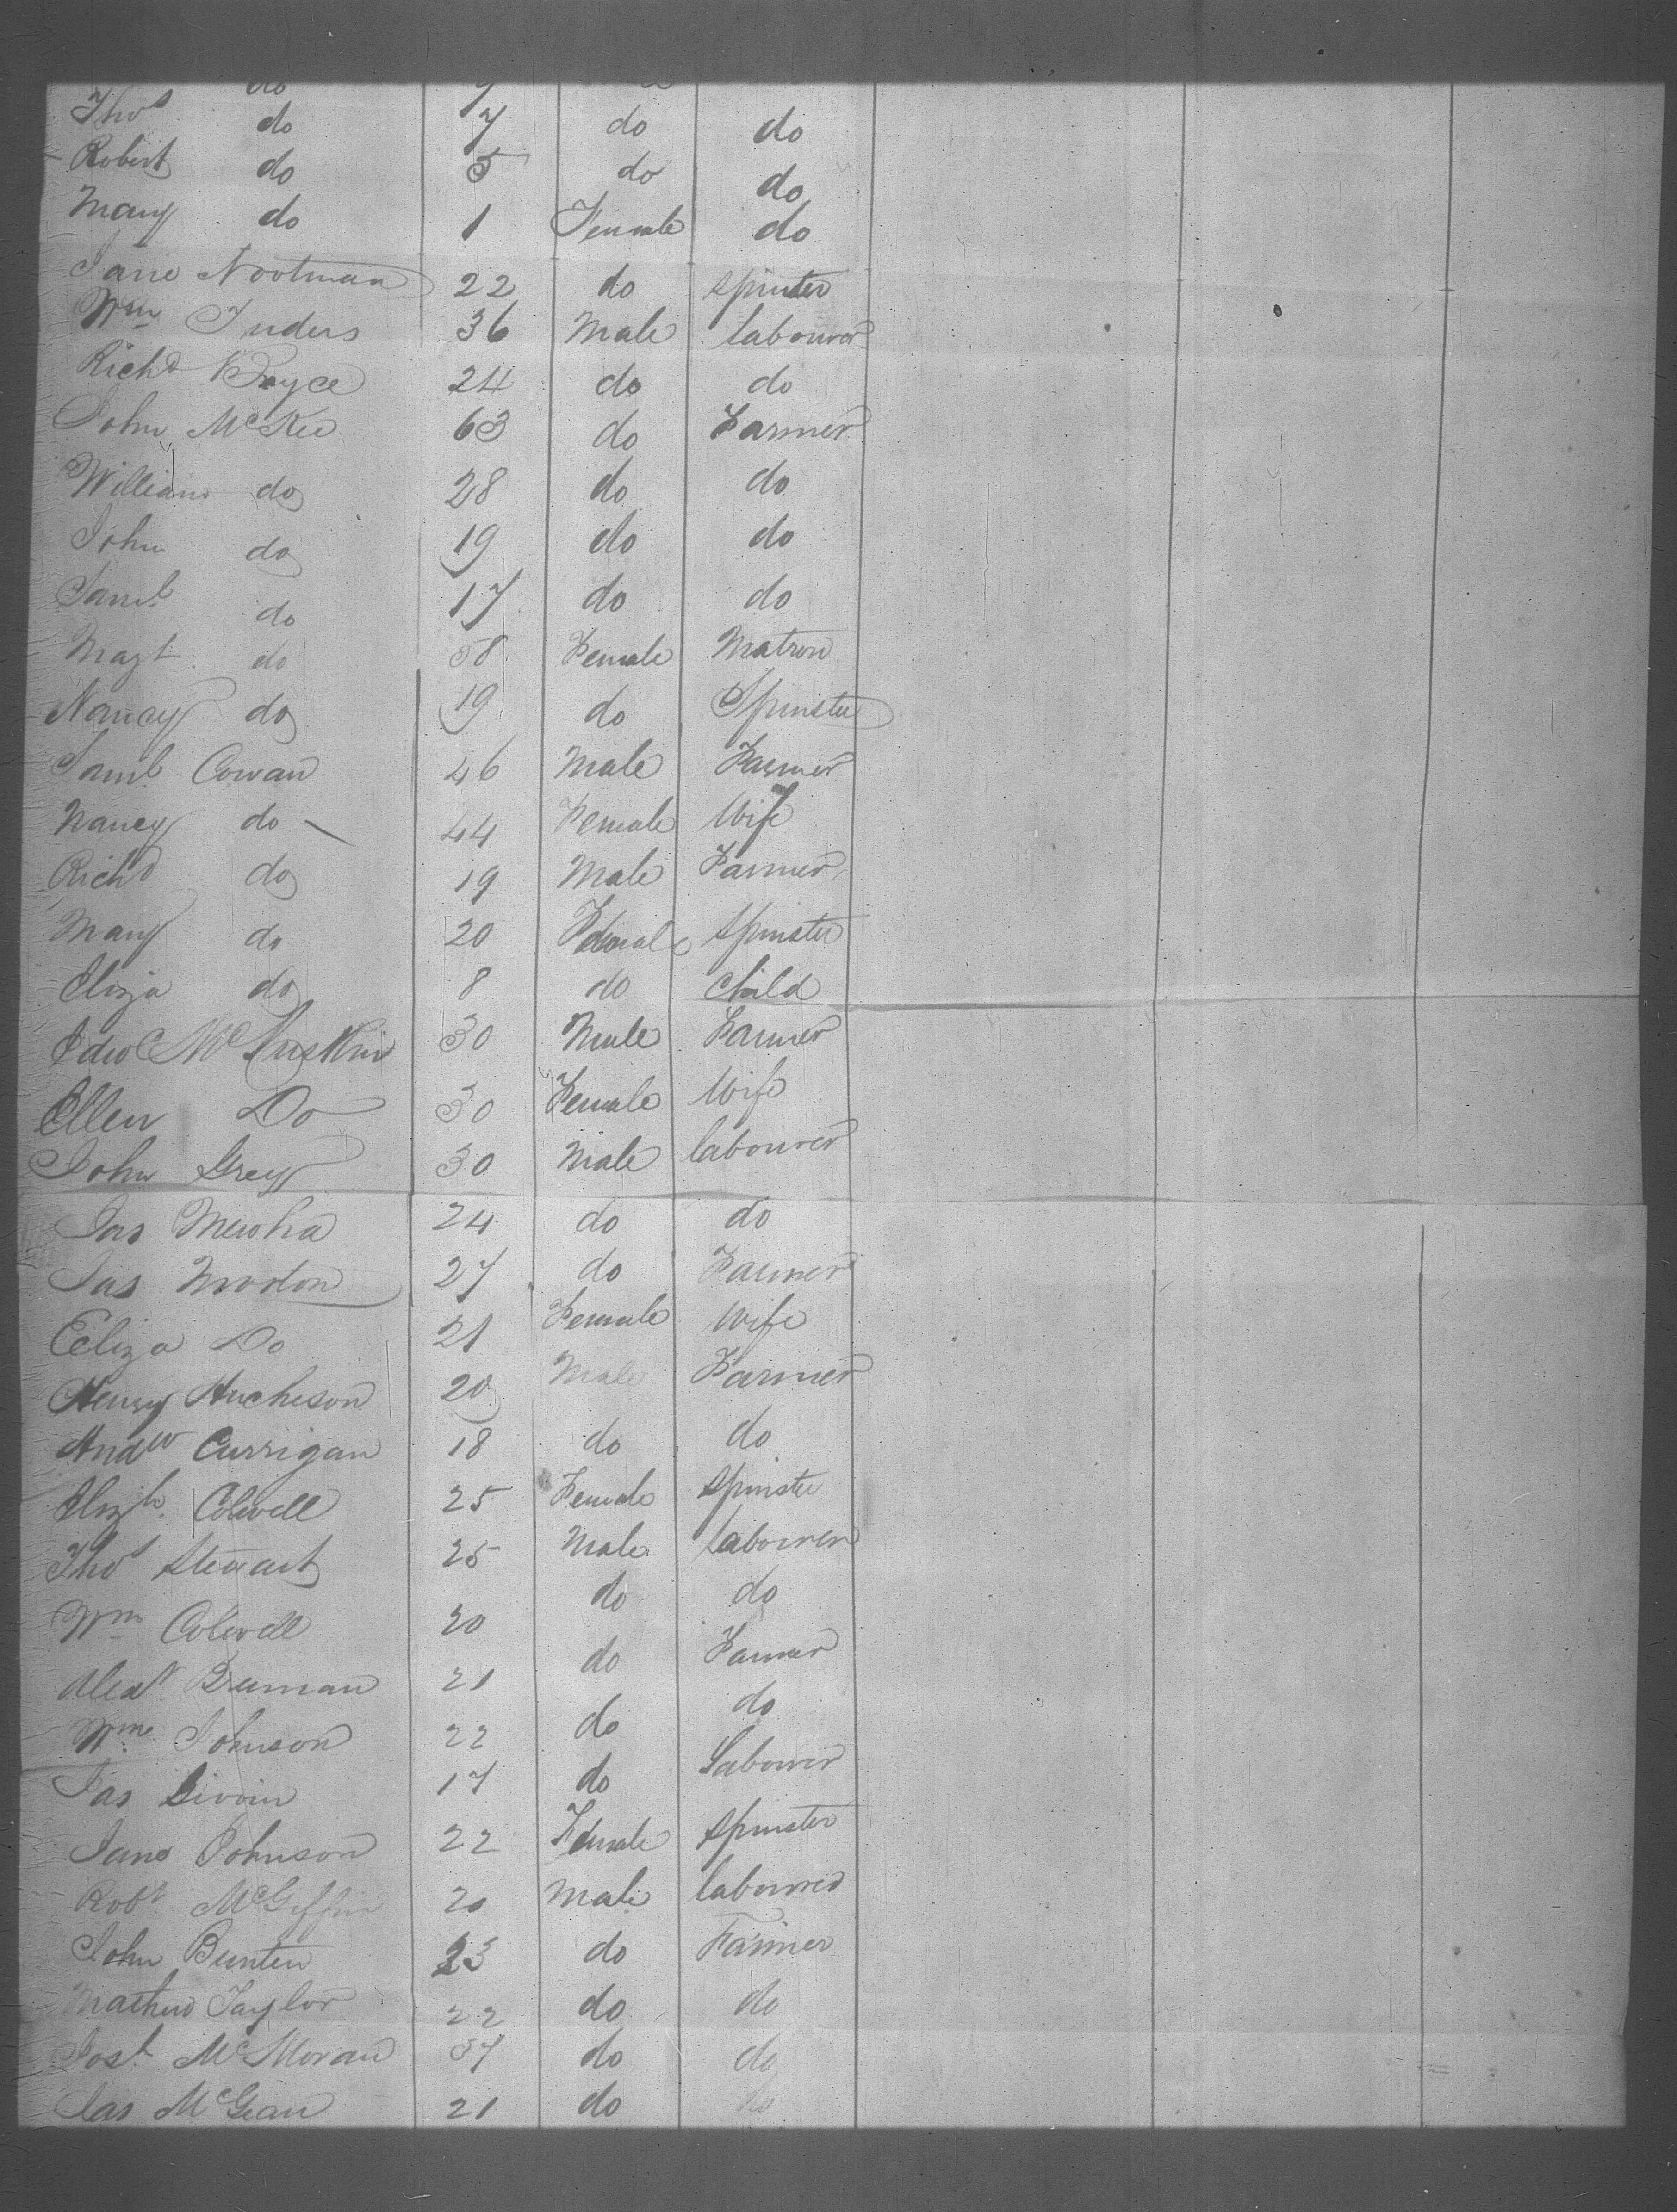 do
Thos do 7 do do
Robert do 5 do do
Mary do 1 Female do
Jane Nootman 22 do spinster
Wm Inders 36 Male labourer
Richd Bryce 24 do do
John McKee 63 do Farmer
William do 28 do do
John do 19 do do
Saml do 17 do do
Magt do 58 Female Matron
Nancy do 19 do Spinster
Saml Cowan 46 Male Farmer
Nancy do 44 Female Wife
Richd do 19 Male Farmer
Mary do 20 Female spinster
Eliza do 8 do Child
Edwd 30 Male Farmer
Ellen Do 30 Female Wife
John Grey 30 Male labourer
Jas Mewha 24 do do
Jas Morton 27 do Farmer
Eliza Do 21 Female Wife
Henry Hucheson 20 Male Farmer
Andw Currigan 18 do do
Elizh Colwell 25 Female spinster
Thos Stewart 25 Male labourer
Wm Colwell 20 do do
Alexr 21 do Farmer
Wm Johnson 22 do do
Jas Girvin 17 do Labourer
Jane Johnson 22 Female spinster
Robt McGiffin 20 Male labourer
John Bunten 23 do Farmer
Mathew Taylor 22 do do
Josh McMoran 37 do do
Jas McGean 21 do do